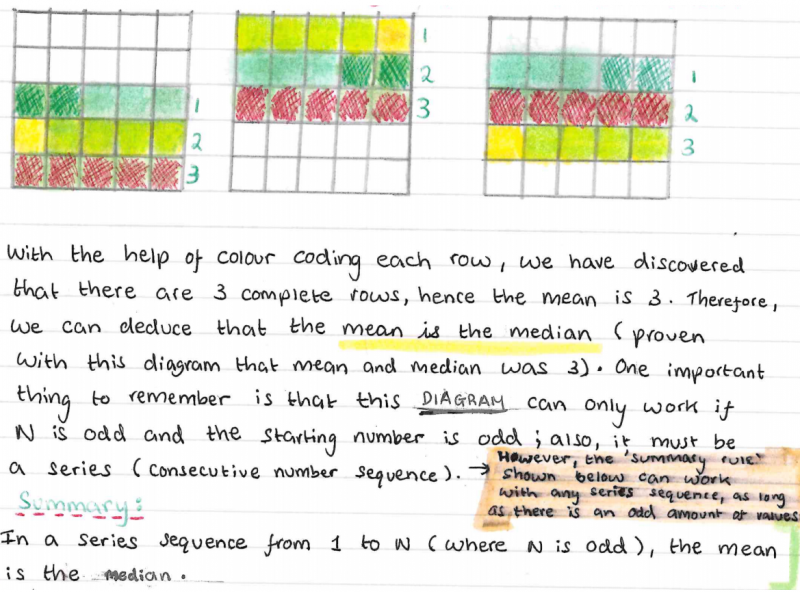 1
2
3
1
2
3
1
2
3
With the help of colour coding each row, we have discovered
that there are 3 complete rows, hence the mean is 3. Therefore,
we can deduce that the mean is the median (proven
with this diagram that mean and median was 3). One important
thing to remember is that this DIAGRAM can only work if
N is odd and the starting number is odd; also, it must be
a series (consecutive number sequence). →
However, the 'summary rule'
shown below can work
with any series sequence, as long
as there is an odd amount of values
Summary:
In a series sequence from 1 to N (where N is odd), the mean
is the median.